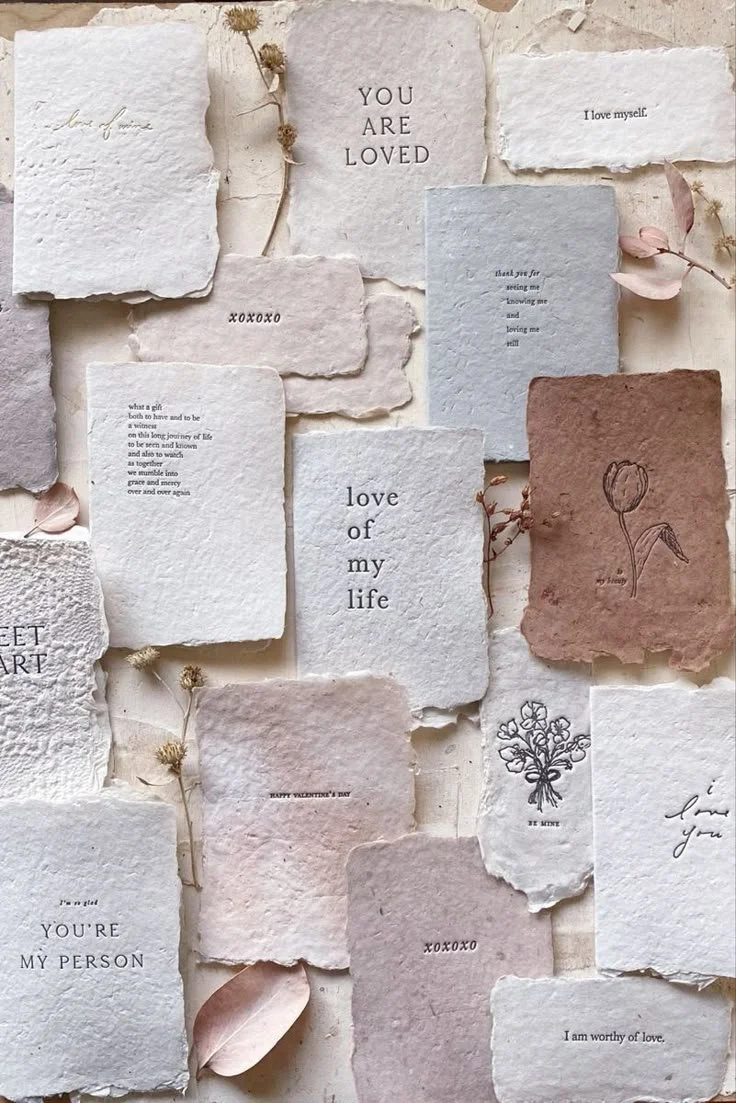 love of mine
YOU
ARE
LOVED
I love myself.
thank you for
seeing me
knowing me
and
loving me
still
xoxoxo
what a gift
both to have and to be
a witness
on this long journey of life
to be seen and known
and also to watch
as together
we stumble into
grace and mercy
over and over again
love
of
my
life
my beauty
EET
ART
HAPPY VALENTINE'S DAY
BE MINE
i
love
you
I'm so glad
YOU'RE
MY PERSON
xoxoxo
I am worthy of love.